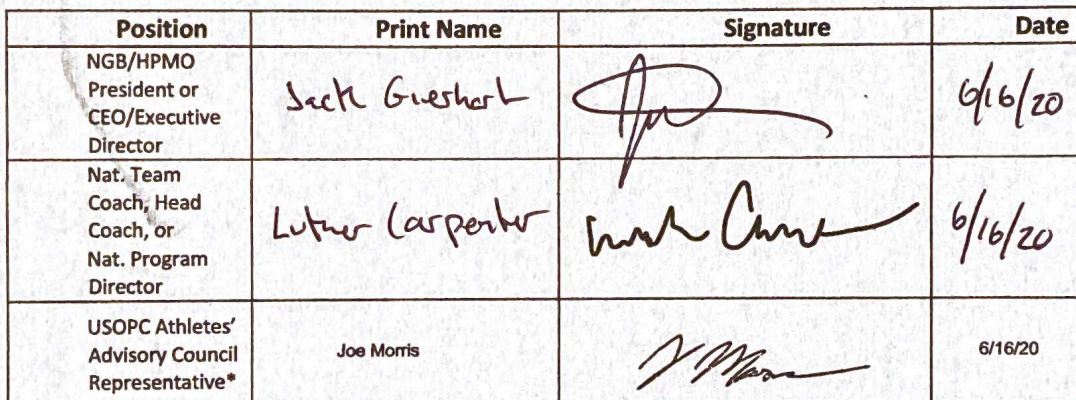 Position Print Name Signature Date
NGB/HPMO
President or
CEO/Executive
Director
Jack Gierhart
6/16/20
Nat. Team
Coach, Head
Coach, or
Nat. Program
Director
Luther Carpenter
6/16/20
USOPC Athletes’
Advisory Council
Representative*
Joe Morris
6/16/20